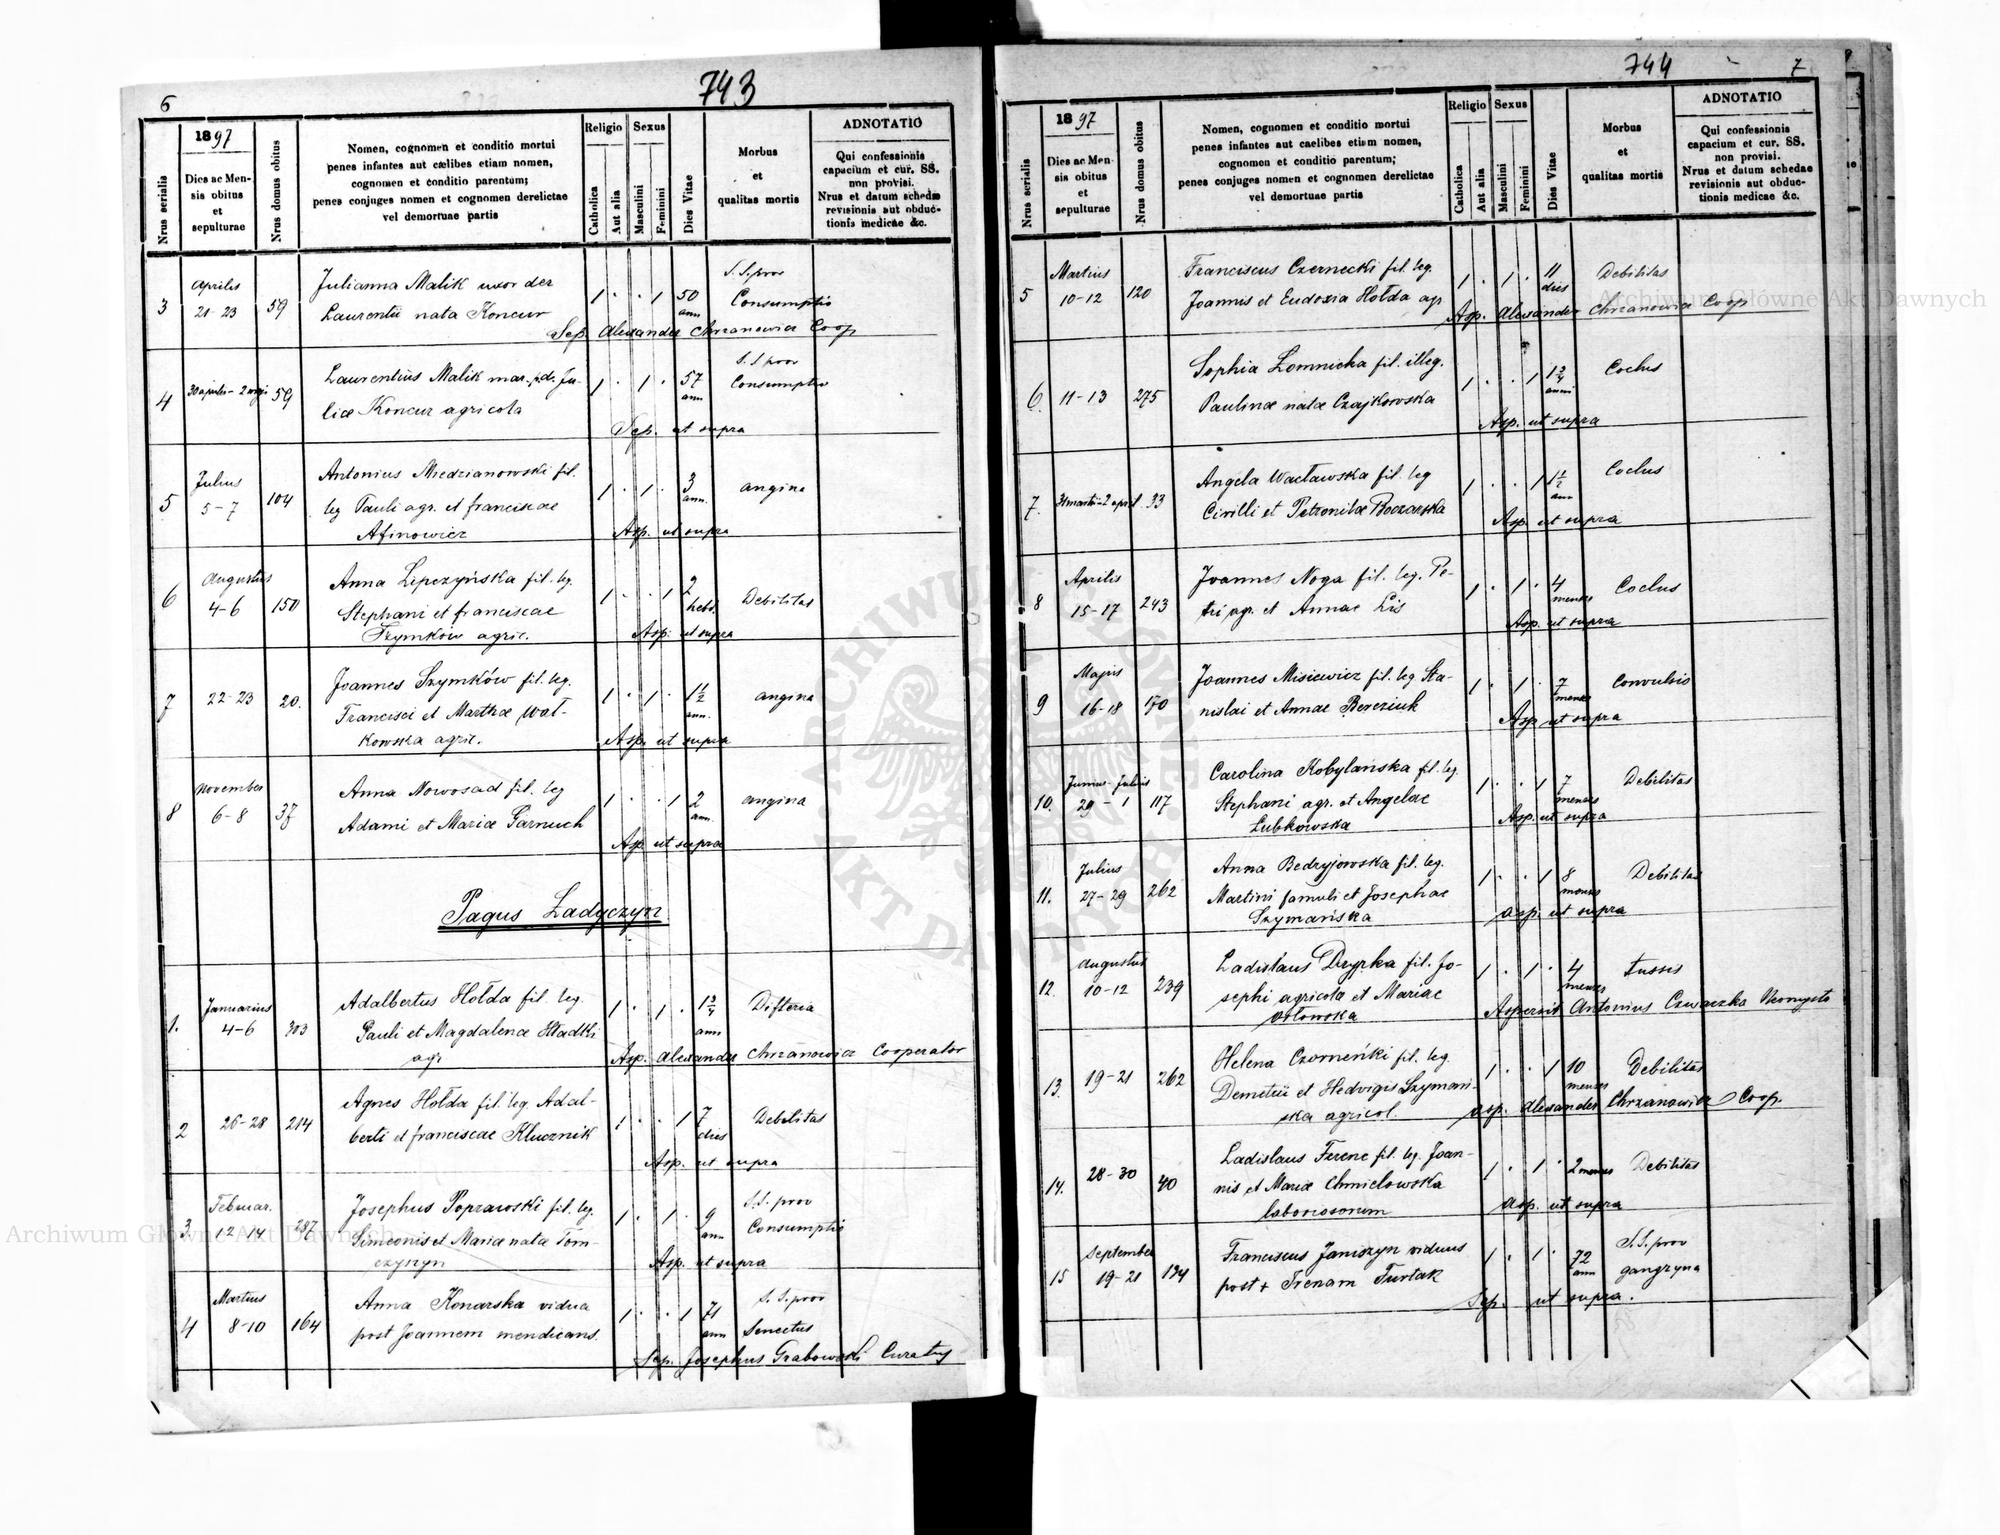 6
743
Nrus serialis
1897
Dies ac Men-
sis obitus
et
sepulturae
Nrus domus obitus
Nomen, cognomen et conditio mortui
penes infantes aut caelibes etiam nomen,
cognomen et conditio parentum;
penes conjuges nomen et cognomen derelictae
vel demortuae partis
Religio
Catholica
Aut alia
Sexus
Masculini
Feminini
Dies Vitae
Morbus
et
qualitas mortis
ADNOTATIO
Qui confessionis
capacium et cur. SS.
non provisi.
Nrus et datum schedae
revisionis aut obduc-
tionis medicae &c.
Aprilis S. S. prov
3 21-23 59 Julianna Malik uxor der 1 . . 1 50 ann Consumptio
Laurentii nata Koncur
Sep. Alexander Chrzanowicz Coop
S. S prov
4 30 aprilis - 2 maji 59 Laurentius Malik mar. p.d. Ju- 1 . 1 . 57 ann Consumptio
liae Koncur agricola
Sep. ut supra
Julius
5 5-7 104 Antonius Miedzianowski fil. 1 . 1 . 3 ann. angina
leg Pauli agr. et franciscae
Afinowicz Asp. ut supra
Augustus
6 4-6 150 Anna Lipczyńska fil. leg. 1 . . 1 2 hebd. Debilitas
Stephani et franciscae
Szymków agric. Asp. ut supra
7 22-23 20. Joannes Szymków fil. leg. 1 . 1 . 1½ ann. angina
Francisci et Marthae Wał-
kowska agric. Asp. ut supra
November
8 6-8 37 Anna Nowosad fil. leg 1 . . 1 2 ann. angina
Adami et Mariae Garnuch
Asp ut supra
Pagus Ładyczyn
Januarius
1. 4-6 303 Adalbertus Hołda fil. leg. 1 . 1 . 1¾ ann Difteria
Pauli et Magdalenae Hładki
agr. Asp. Alexander Chrzanowicz Cooperator
2 26-28 214 Agnes Hołda fil. leg. Adal- 1 . . 1 7 dies Debilitas
berti et franciscae Klucznik
Asp. ut supra
Februar. S. S. prov
3 12 14 287 Josephus Poprawski fil. leg. 1 . 1 . 9 ann Consumptio
Simeonis et Mariae nata Tom-
czyszyn Asp. ut supra
Martius S. S. prov
4 8-10 164 Anna Konarska vidua 1 . . 1 71 ann Senectus
post Joannem mendicans.
Sep. Josephus Grabowski Curatus
744
7
Nrus serialis
1897
Dies ac Men-
sis obitus
et
sepulturae
Nrus domus obitus
Nomen, cognomen et conditio mortui
penes infantes aut caelibes etiam nomen,
cognomen et conditio parentum;
penes conjuges nomen et cognomen derelictae
vel demortuae partis
Religio
Catholica
Aut alia
Sexus
Masculini
Feminini
Dies Vitae
Morbus
et
qualitas mortis
ADNOTATIO
Qui confessionis
capacium et cur. SS.
non provisi.
Nrus et datum schedae
revisionis aut obduc-
tionis medicae &c.
Martius
5 10-12 120 Franciscus Czernecki fil. leg. 1 . 1 . 11 dies Debilitas
Joannis et Eudoxia Hołda agr
Asp. Alexander Chrzanowicz Coop
6. 11-13 275 Sophia Łomnicka fil. illeg. 1 . . 1 1¾ anni Coclus
Paulinae natae Czajkowska
Asp. ut supra
7. 31 martii-2 april 33 Angela Wacławska fil. leg 1 . . 1 1½ ann Coclus
Cirilli et Petronilae Boczarska
Asp. ut supra
Aprilis
8 15-17 243 Joannes Noga fil. leg. Pe- 1 . 1 . 4 menses Coclus
tri agr. et Annae Lis
Asp. ut supra
Majus
9 16-18 150 Joannes Misiewicz fil. leg Sta- 1 . 1 . 7 menses Convulsio
nislai et Annae Bereziuk
Asp ut supra
Junius-Julius
10. 29-1 117 Carolina Kobylańska fil. leg. 1 . . 1 7 menses Debilitas
Stephani agr. et Angelae
Lubkowska Asp. ut supra
Julius
11. 27-29 262 Anna Bedryjowska fil. leg. 1 . . 1 8 menses Debilitas
Martini famuli et Josephae
Szymańska asp. ut supra
Augustus
12. 10-12 239 Ladislaus Drypka fil. Jo- 1 . 1 . 4 menses tussis
sephi agricola et Mariae
Orłowska Aspersit Antonius Czwaczka Neomysta
13. 19-21 262 Helena Czorneńki fil. leg. 1 . . 1 10 menses Debilitas
Demetrii et Hedvigis Szymań-
ska agricol. asp. Alexander Chrzanowicz Coop.
14. 28-30 40 Ladislaus Ferenc fil. leg. Joan- 1 . 1 . 2 menses Debilitas
nis et Mariae Chmielowska
laboriosorum asp. ut supra
September S. S. prov
15 19-21 134 Franciscus Janiszyn viduus 1 . 1 . 72 ann gangryna
post + Irenam Turtak
Sep. ut supra.
Archiwum Główne Akt Dawnych
Archiwum Główne Akt Dawnych
ARCHIWUM GŁÓWNE AKT DAWNYCH